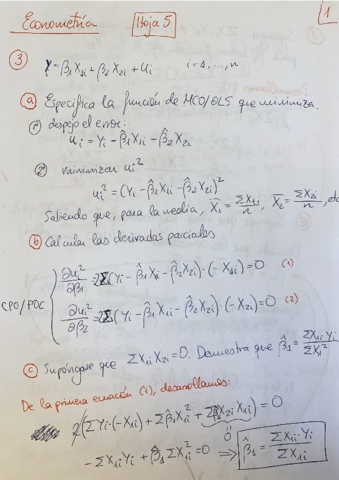 Econometría Hoja 5 1
③ Y = β₁X₁ᵢ + β₂X₂ᵢ + uᵢ i=1, ..., n
ⓐ Especifica la función de MCO/OLS que minimiza.
1º despejo el error:
uᵢ = Yᵢ - β̂₁X₁ᵢ - β̂₂X₂ᵢ
2º minimizar uᵢ²
uᵢ² = (Yᵢ - β̂₁X₁ᵢ - β̂₂X₂ᵢ)²
Sabiendo que, para la media, X̄₁ = ΣX₁ᵢ/n, X̄₂ = ΣX₂ᵢ/n
ⓑ Calcular las derivadas parciales
CPO/FOC
∂uᵢ²/∂β₁ = 2Σ(Yᵢ - β̂₁Xᵢ - β̂₂X₂ᵢ)·(-X₁ᵢ) = 0 (1)
∂uᵢ²/∂β₂ = 2Σ(Yᵢ - β̂₁X₁ᵢ - β̂₂X₂ᵢ)·(-X₂ᵢ) = 0 (2)
ⓒ Supóngase que ΣX₁ᵢX₂ᵢ = 0. Demuestra que β̂₁ = ΣX₁ᵢYᵢ/ΣX₁²
De la primera ecuación (1), desarrollamos:
2(ΣYᵢ·(-X₁ᵢ) + Σβ̂₁X₁ᵢ² + Σβ̂₂X₂ᵢX₁ᵢ) = 0
0
-ΣX₁ᵢYᵢ + β̂₁ΣX₁ᵢ² = 0 ⇒ β̂₁ = ΣX₁ᵢ·Yᵢ/ΣX₁ᵢ